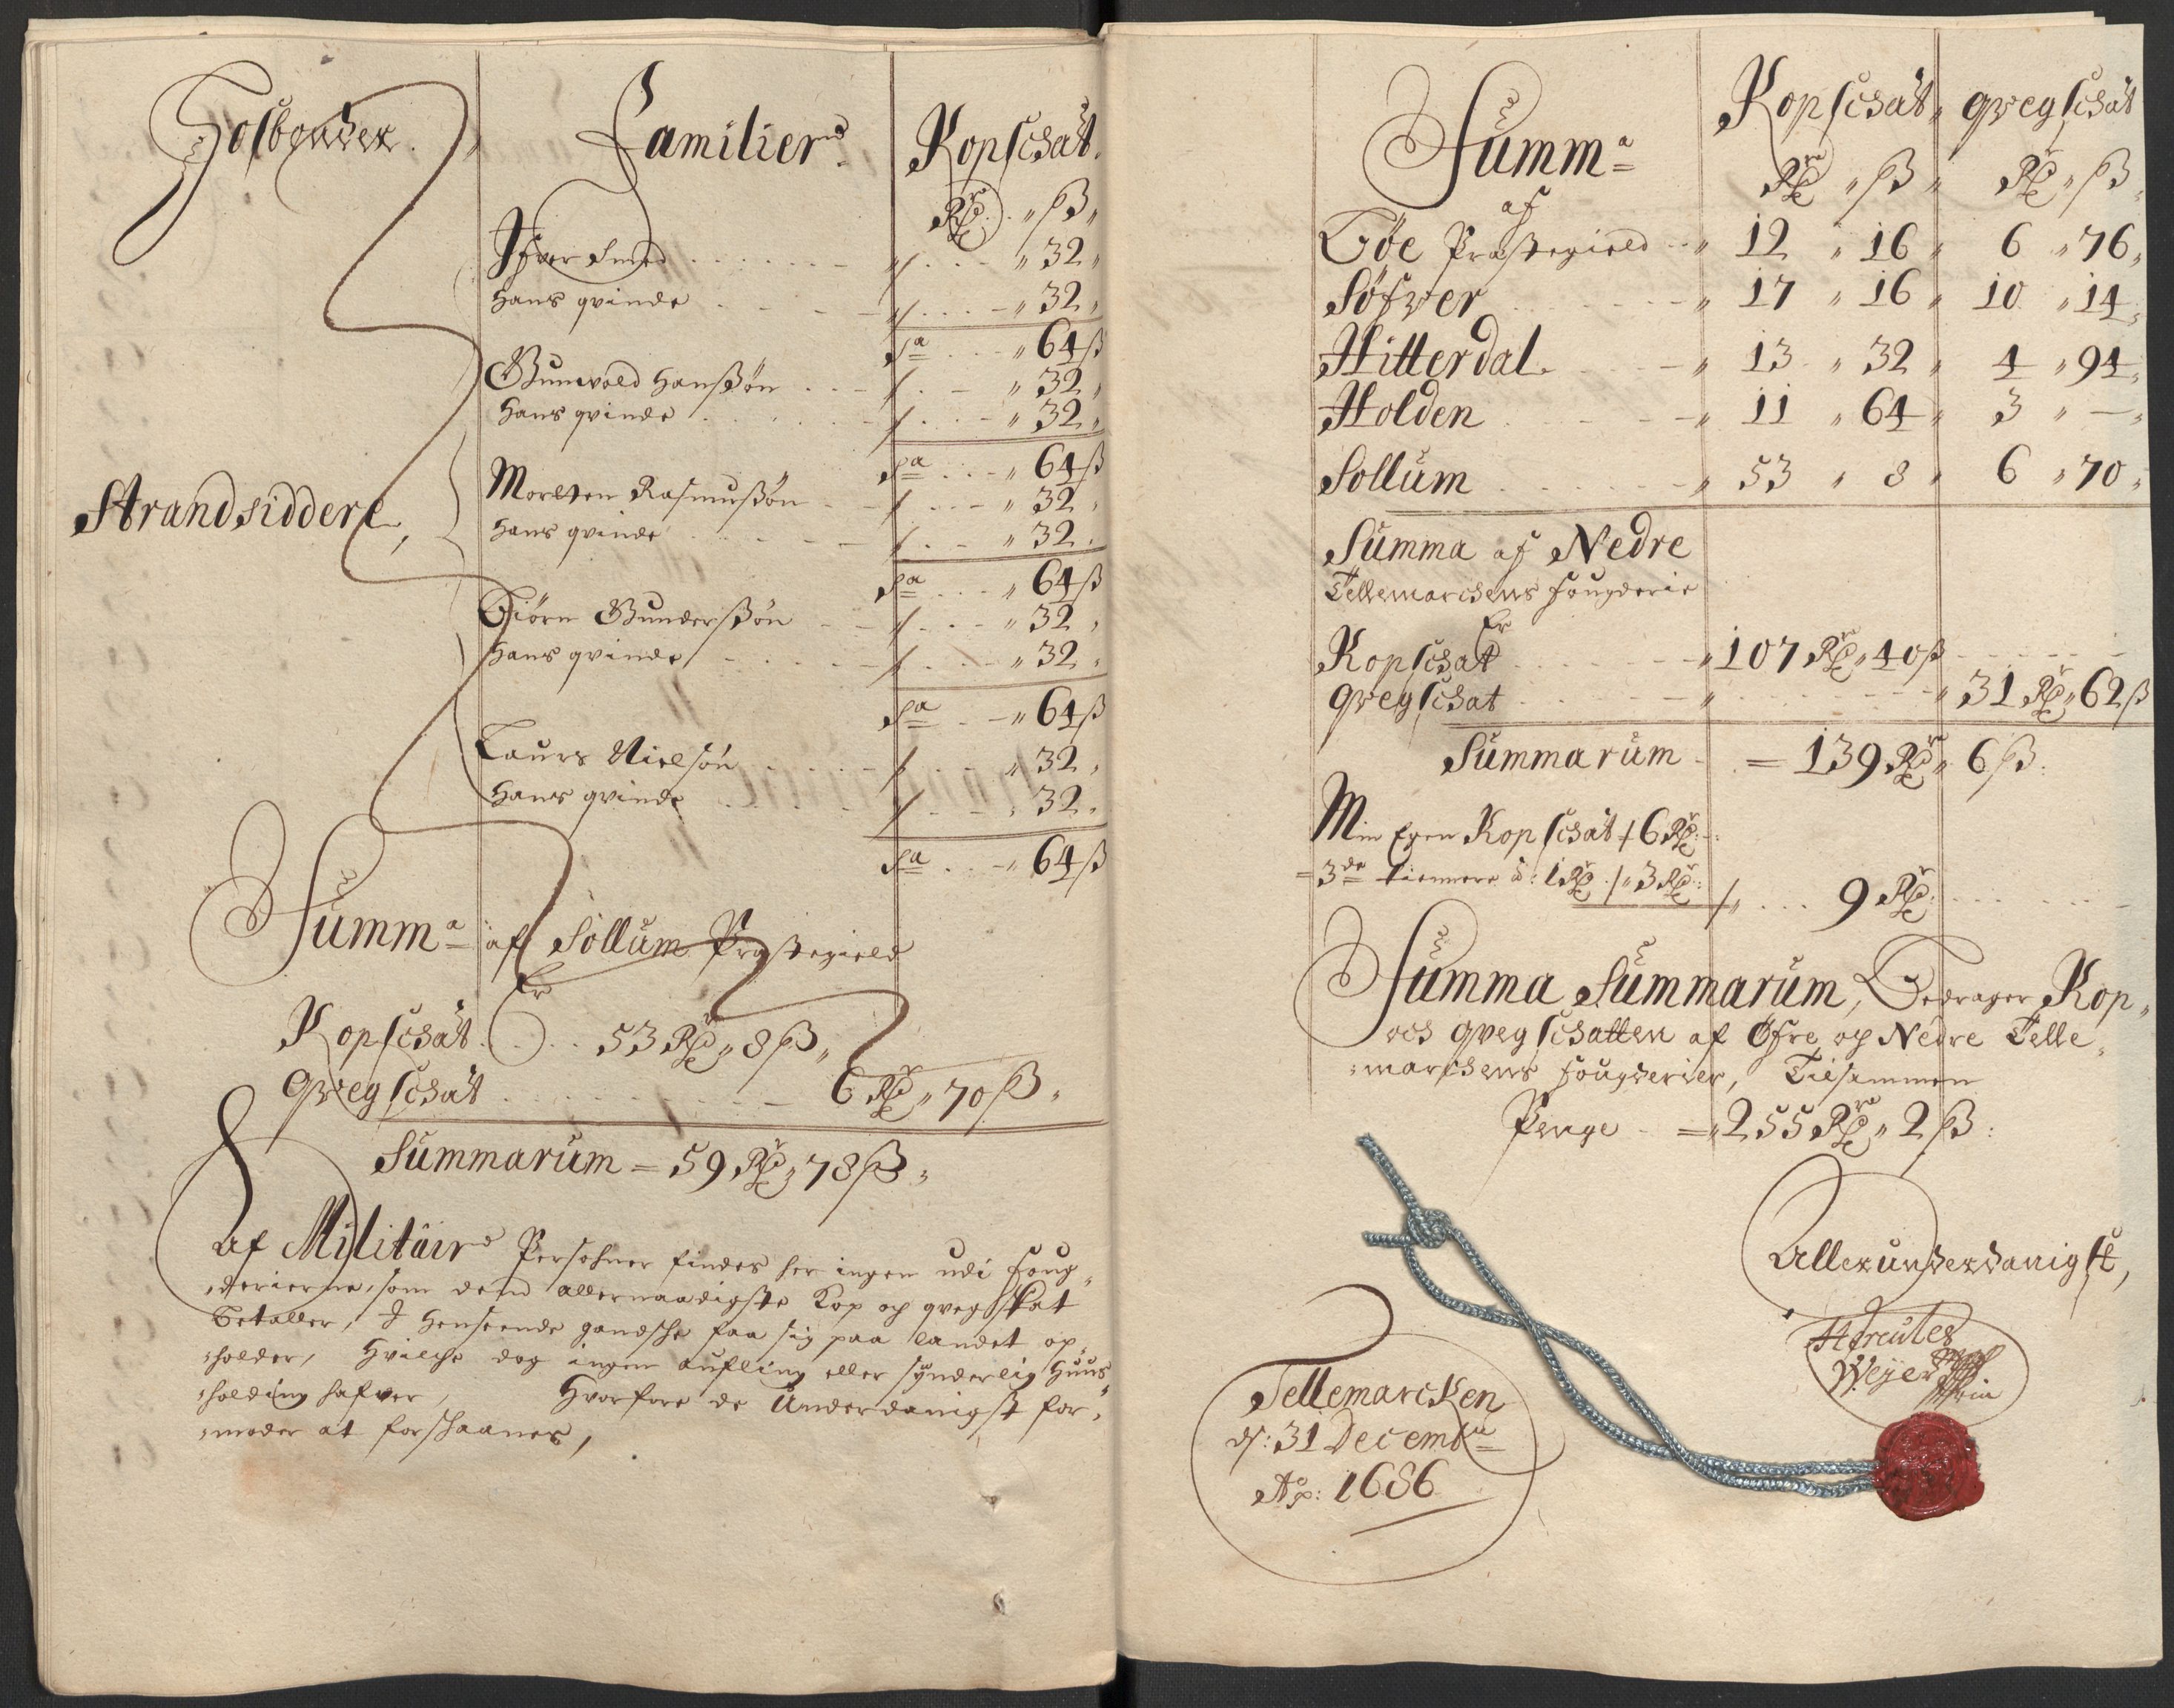 Hosbonder. Familier Kopschat.
Rdr ß
Ifver Smed 32
Hans qvinde 32
Sa 64 ß
Gunvold Hanßøn 32
Hans qvinde 32
Sa 64 ß
Strandsiddere,
Morten Rasmußøn 32
Hans qvinde 32
Sa 64 ß
Biørn Gunderßøn 32
Hans qvinde 32
Sa 64 ß
Laurs Nielsøn 32
Hans qvinde 32
Sa 64 ß
Summa af Sollum Præstegield
Er
Kopschat 53 Rdr 8 ß
Qvegschat 6 Rdr 70 ß
Summarum = 59 Rdr 78 ß
Af Militair Persohner findes her ingen udi foug-
derierne, som dend allernaadigste Kop og qvegskat
betaller, I henseende gandsche faa sig paa landet op-
holder, hvilche dog ingen aufling eller sÿnderlig huus-
holding hafver, Hvorfore de Underdanigst for-
moder at forschaanes,
Summa Kopschat qvegschat
af Rdr ß Rdr ß
Bøe Præstegield 12 16 6 76
Søfver 17 16 10 14
Hitterdal 13 32 4 94
Holden 11 64 3 —
Sollum 53 8 6 70
Summa af Nedre
Tellemarchens fougderie
Er
Kopschat 107 Rdr 40 ß
qvegschat 31 Rdr 62 ß
Summarum = 139 Rdr 6 ß
Min Egen Kopschat / 6 Rdr
3de tiennere à: 1 Rdr / 3 Rdr
9 Rdr
Summa Summarum, Bedrager Kop-
och qvegschatten af Øfre og Nedre Telle-
marchens fougderier, Tilsammen
Penge = 255 Rdr 2 ß
Allerunderdanigst,
Hercules
Weyer
Tellemarcken
d: 31 Decemb
Ao: 1686